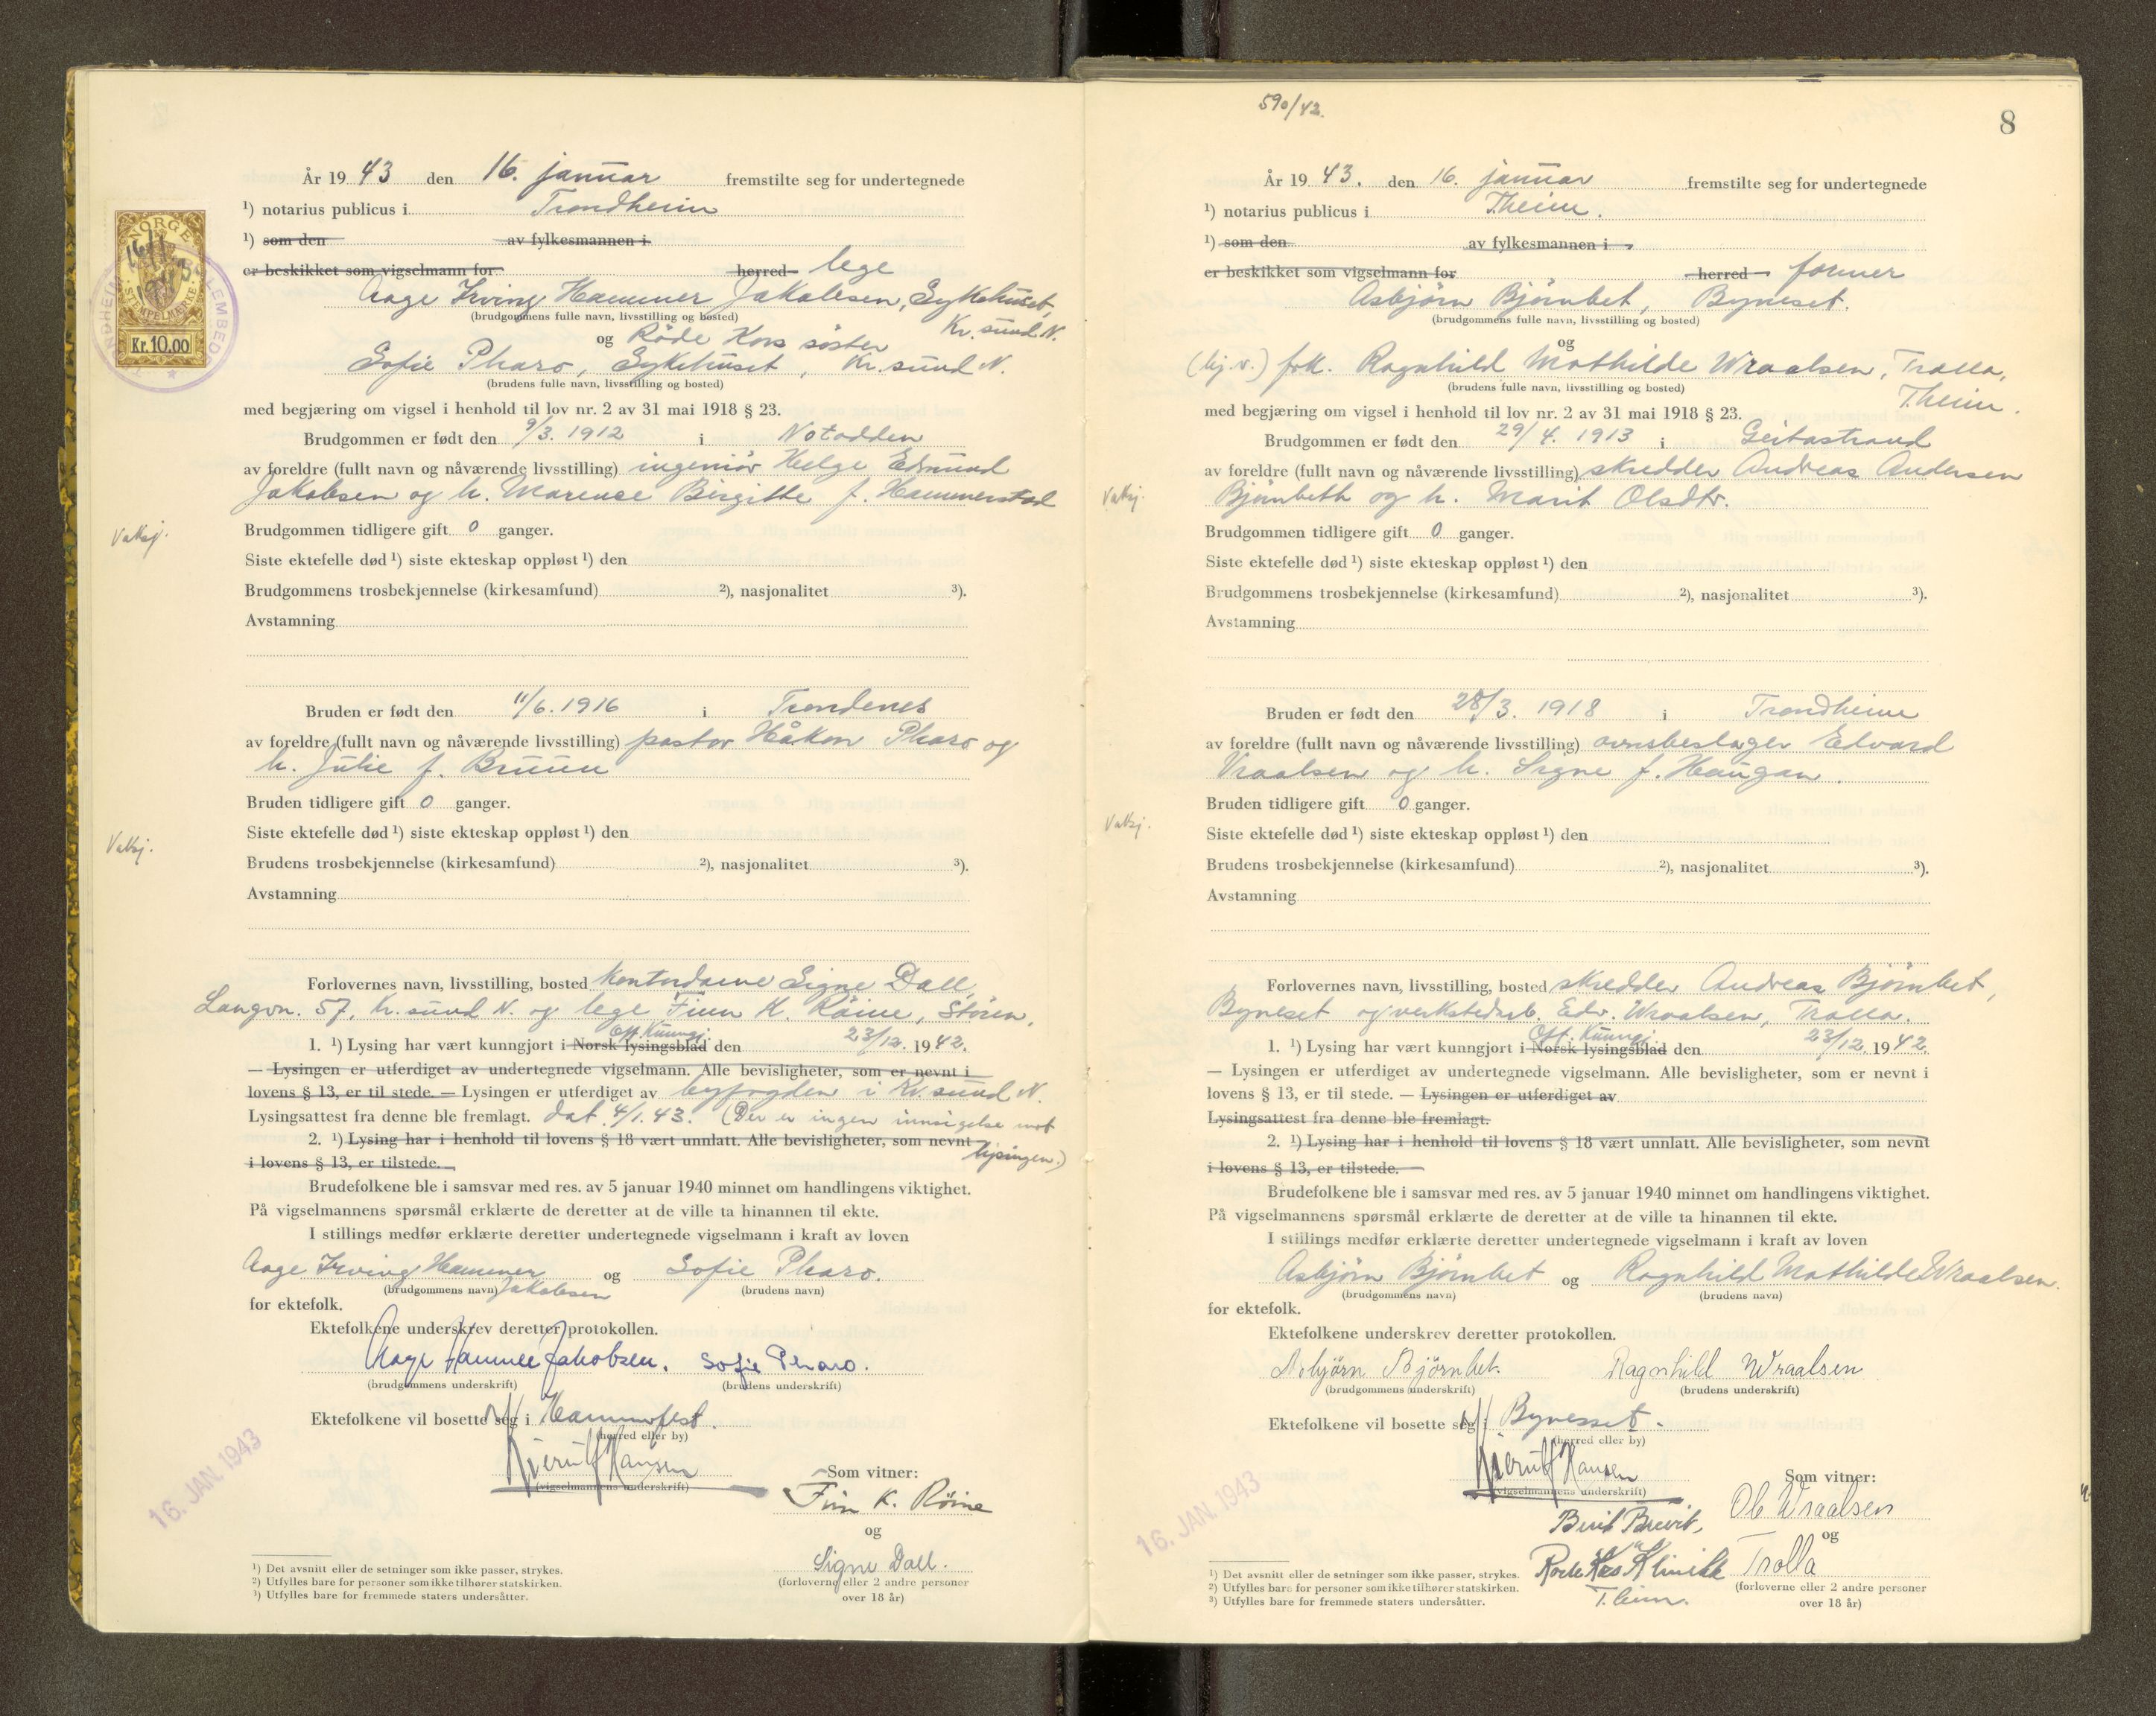 År 19 43 den 16. januar fremstilte seg for undertegnede
¹) notarius publicus i Trondheim
¹) som den av fylkesmannen i
er beskikket som vigselmann for herred lege
Aage Irving Hammer Jakobsen, Sykehuset,
(brudgommens fulle navn, livsstilling og bosted) Kr.sund N.
og Røde Kors søster
Sofie Pharo, Sykehuset, Kr.sund N.
(brudens fulle navn, livsstilling og bosted)
med begjæring om vigsel i henhold til lov nr. 2 av 31 mai 1918 § 23.
Brudgommen er født den 9/3. 1912 i Notodden
av foreldre (fullt navn og nåværende livsstilling) ingeniør Helge Edmund
Jakobsen og h. Marense Birgitte f. Hammerstad
Brudgommen tidligere gift 0 ganger.
Vatksj.
Siste ektefelle død ¹) siste ekteskap oppløst ¹) den
Brudgommens trosbekjennelse (kirkesamfund) ²), nasjonalitet ³).
Avstamning
Bruden er født den 11/6. 1916 i Trondenes
av foreldre (fullt navn og nåværende livsstilling) pastor Håkon Pharo og
h. Julie f. Bruun
Bruden tidligere gift 0 ganger.
Siste ektefelle død ¹) siste ekteskap oppløst ¹) den
Vatksj.
Brudens trosbekjennelse (kirkesamfund) ²), nasjonalitet ³).
Avstamning
Forlovernes navn, livsstilling, bosted kontordame Signe Dall,
Langvn. 57, Kr.sund N. og lege Finn K. Röine, Støren,
Off. Kunngj.
1. ¹) Lysing har vært kunngjort i Norsk lysingsblad den 23/12. 1942.
— Lysingen er utferdiget av undertegnede vigselmann. Alle bevisligheter, som er nevnt i
lovens § 13, er til stede. — Lysingen er utferdiget av byfogden i Kr.sund N.
Lysingsattest fra denne ble fremlagt. dat. 4/1. 43. (Der er ingen innsigelse mot
2. ¹) Lysing har i henhold til lovens § 18 vært unnlatt. Alle bevisligheter, som nevnt lysingen.)
i lovens § 13, er tilstede.
Brudefolkene ble i samsvar med res. av 5 januar 1940 minnet om handlingens viktighet.
På vigselmannens spørsmål erklærte de deretter at de ville ta hinannen til ekte.
I stillings medfør erklærte deretter undertegnede vigselmann i kraft av loven
Aage Irving Hammer og Sofie Pharo.
(brudgommens navn) Jakobsen (brudens navn)
for ektefolk.
Ektefolkene underskrev deretter protokollen.
Aage Hammer Jakobsen. Sofie Pharo.
(brudgommens underskrift) (brudens underskrift)
Ektefolkene vil bosette seg i Hammerfest.
(herred eller by)
Kierulf Hansen Som vitner:
(vigselmannens underskrift)
Finn K. Röine
og
Signe Dall.
(forloverne eller 2 andre personer
over 18 år)
16. JAN. 1943
¹) Det avsnitt eller de setninger som ikke passer, strykes.
²) Utfylles bare for personer som ikke tilhører statskirken.
³) Utfylles bare for fremmede staters undersåtter.
NORGE
16/1
STEMPELMÆRKE
Kr. 10.00
590/42.
8
År 19 43. den 16. januar fremstilte seg for undertegnede
¹) notarius publicus i T.heim.
¹) som den av fylkesmannen i
er beskikket som vigselmann for herred former
Asbjörn Björnbet, Byneset.
(brudgommens fulle navn, livsstilling og bosted)
og
(hj.v.) frk. Ragnhild Mathilde Wraalsen, Trolla,
(brudens fulle navn, livsstilling og bosted) T.heim.
med begjæring om vigsel i henhold til lov nr. 2 av 31 mai 1918 § 23.
Brudgommen er født den 29/4. 1913 i Geitastrand
av foreldre (fullt navn og nåværende livsstilling) skredder Andreas Andersen
Vatksj.
Björnbeth og h. Marit Olsdtr.
Brudgommen tidligere gift 0 ganger.
Siste ektefelle død ¹) siste ekteskap oppløst ¹) den
Brudgommens trosbekjennelse (kirkesamfund) ²), nasjonalitet ³).
Avstamning
Bruden er født den 28/3. 1918 i Trondheim
av foreldre (fullt navn og nåværende livsstilling) ovnsbeslager Edvard
Vraalsen og h. Signe f. Haugan.
Bruden tidligere gift 0 ganger.
Vatksj.
Siste ektefelle død ¹) siste ekteskap oppløst ¹) den
Brudens trosbekjennelse (kirkesamfund) ²), nasjonalitet ³).
Avstamning
Forlovernes navn, livsstilling, bosted skredder Andreas Björnbet,
Byneset og verkstedarb. Edv. Wraalsen, Trolla.
Off. Kunngj.
1. ¹) Lysing har vært kunngjort i Norsk lysingsblad den 23/12. 1942.
— Lysingen er utferdiget av undertegnede vigselmann. Alle bevisligheter, som er nevnt i
lovens § 13, er til stede. — Lysingen er utferdiget av
Lysingsattest fra denne ble fremlagt.
2. ¹) Lysing har i henhold til lovens § 18 vært unnlatt. Alle bevisligheter, som nevnt
i lovens § 13, er tilstede.
Brudefolkene ble i samsvar med res. av 5 januar 1940 minnet om handlingens viktighet.
På vigselmannens spørsmål erklærte de deretter at de ville ta hinannen til ekte.
I stillings medfør erklærte deretter undertegnede vigselmann i kraft av loven
Asbjörn Björnbet og Ragnhild Mathilde Wraalsen.
(brudgommens navn) (brudens navn)
for ektefolk.
Ektefolkene underskrev deretter protokollen.
Asbjörn Björnbet. Ragnhild Wraalsen
(brudgommens underskrift) (brudens underskrift)
Ektefolkene vil bosette seg i Bynesset.
(herred eller by)
Kierulf Hansen Som vitner:
(vigselmannens underskrift)
Ole Wraalsen
Berit Brevik,
og
Røde Kors Klinikk Trolla
T.heim.
(forloverne eller 2 andre personer
over 18 år)
16. JAN. 1943
¹) Det avsnitt eller de setninger som ikke passer, strykes.
²) Utfylles bare for personer som ikke tilhører statskirken.
³) Utfylles bare for fremmede staters undersåtter.